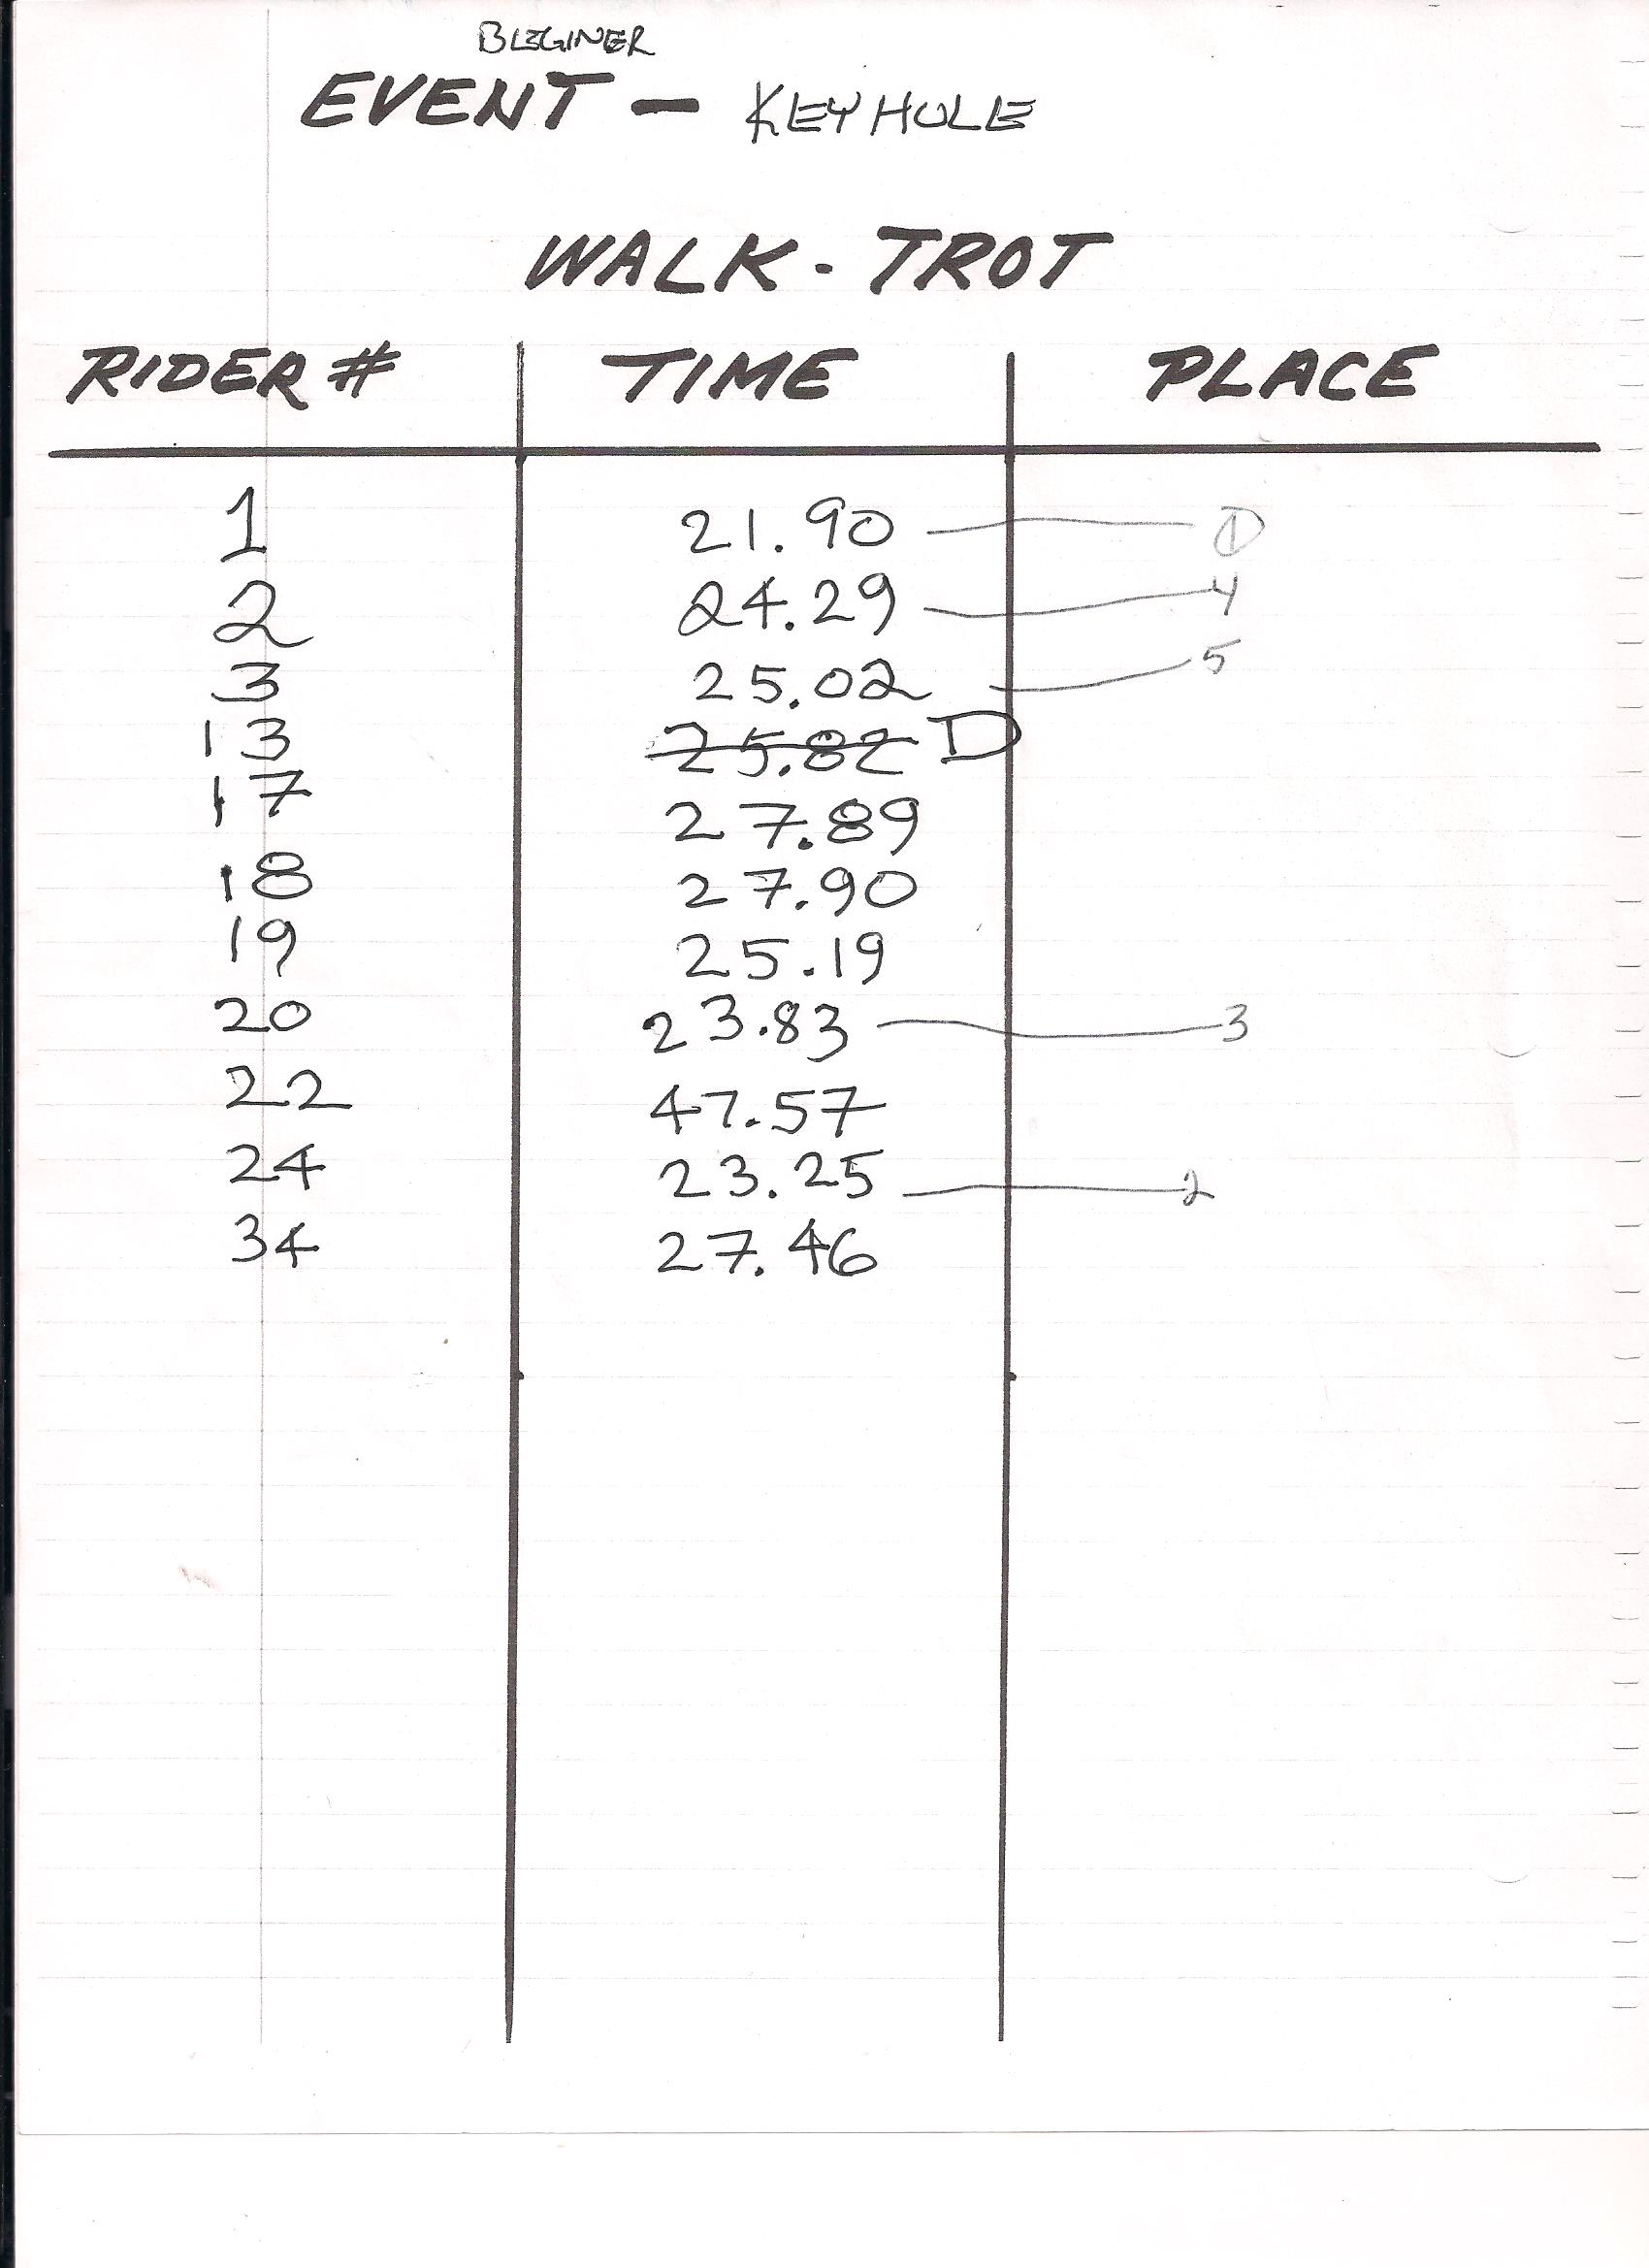 BEGINER
EVENT - KEYHOLE
WALK - TROT
RIDER # TIME PLACE
1 21.90 1
2 24.29 4
3 25.02 5
13 25.82 D
17 27.89
18 27.90
19 25.19
20 23.83 3
22 47.57
24 23.25 2
34 27.46